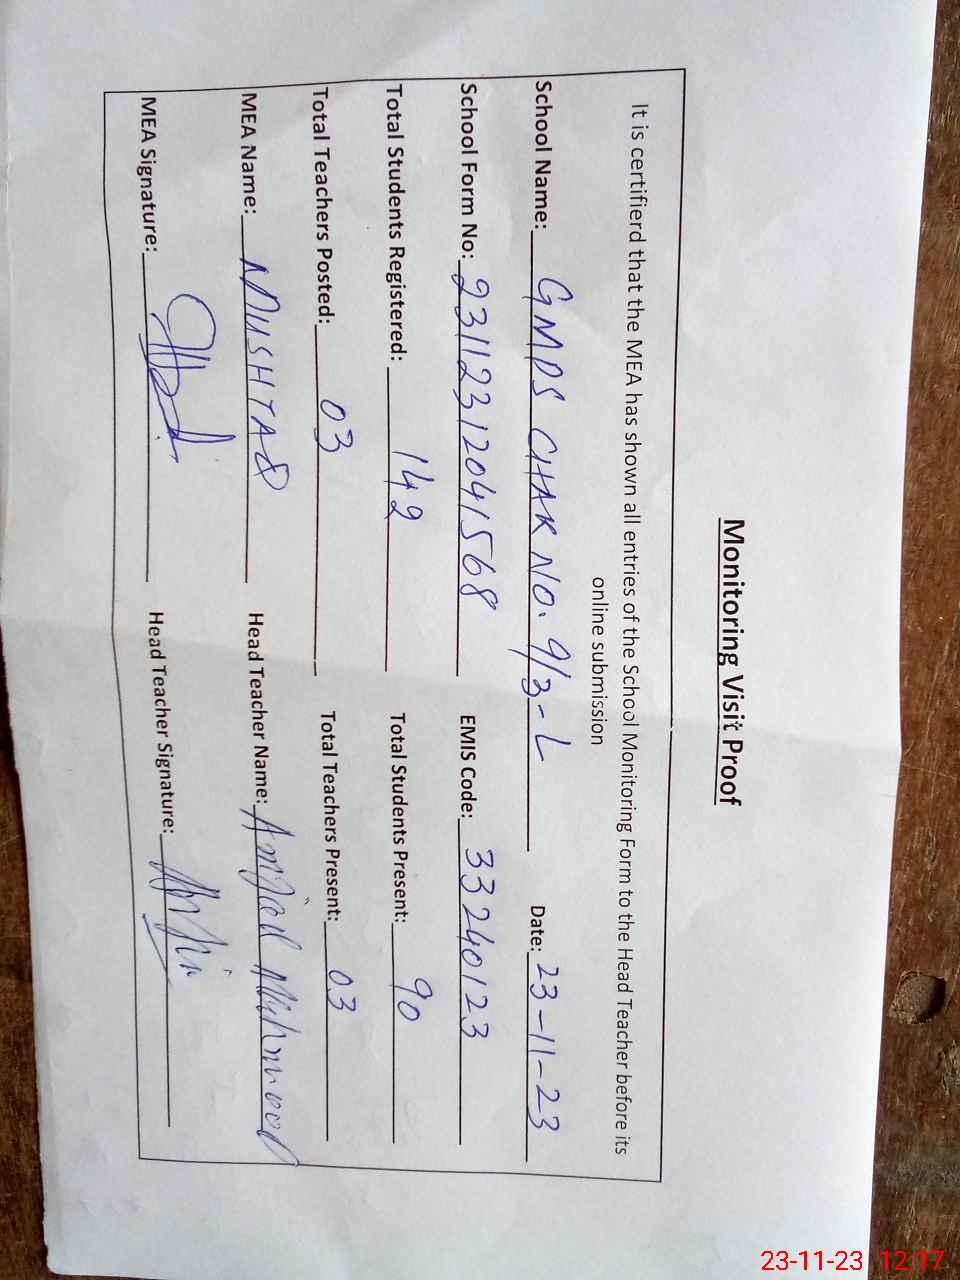 Monitoring Visit Proof
It is certifierd that the MEA has shown all entries of the School Monitoring Form to the Head Teacher before its
online submission
School Name: GMPS CHAK NO. 9/3-L Date: 23-11-23
School Form No: 23112312041568 EMIS Code: 33240123
Total Students Registered: 142 Total Students Present: 90
Total Teachers Posted: 03 Total Teachers Present: 03
MEA Name: MUSHTAQ Head Teacher Name: Amjad Mehmood
MEA Signature: Head Teacher Signature:
23-11-23 12:17